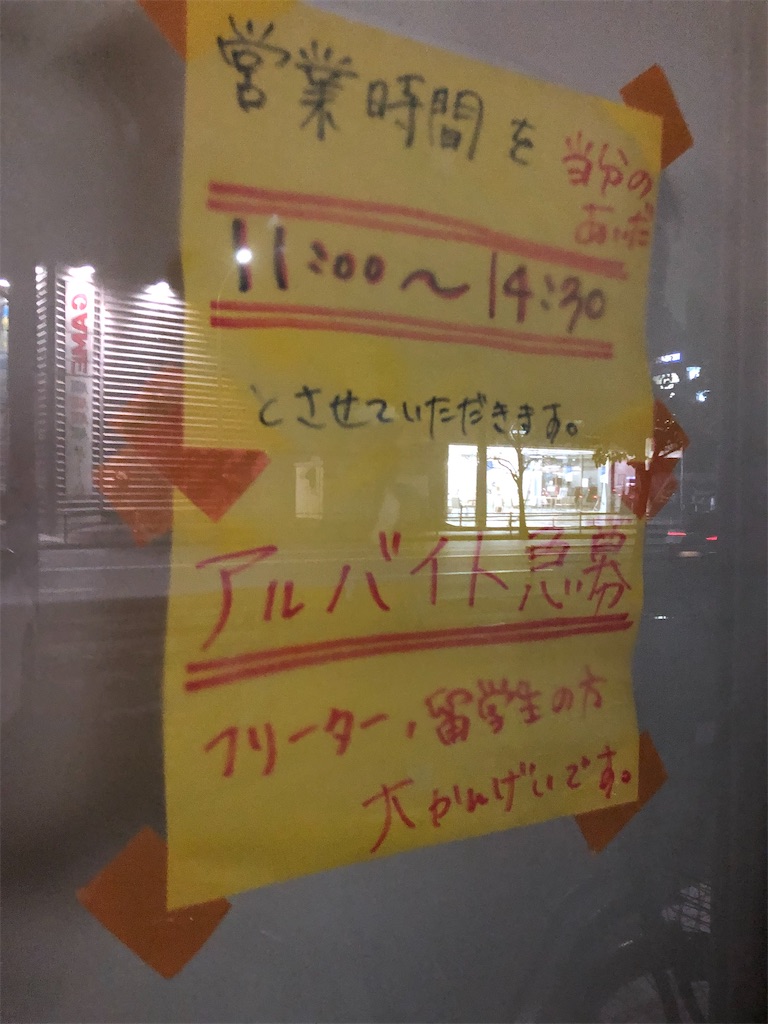 営業時間を
当分の
あいだ
11:00～14:30
とさせていただきます。
アルバイト急募
フリーター，留学生の方
大かんげいです。
GAME